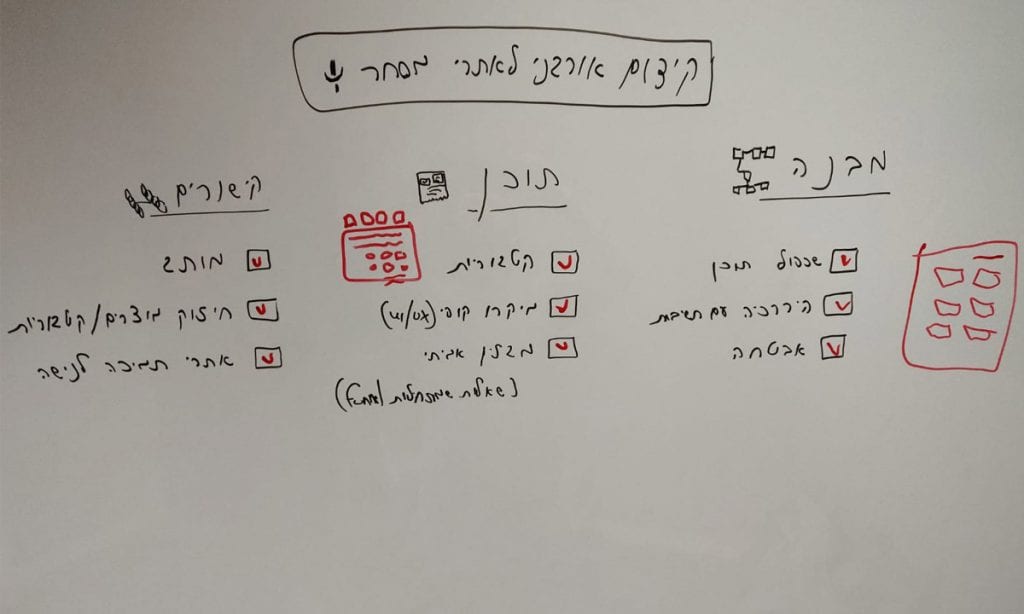 קידום אורגני לאתרי מסחר
מבנה
שכלול תוכן
היררכיה עם חשיבות
אבטחה
תוכן
קטגוריות
מיקרו קופי (ux/ui)
מגזין איכותי
(שאלות שמתחילות Funnel)
קישורים
מותג
חיזוק מוצרים/קטגוריות
אתרי תמיכה לנישה